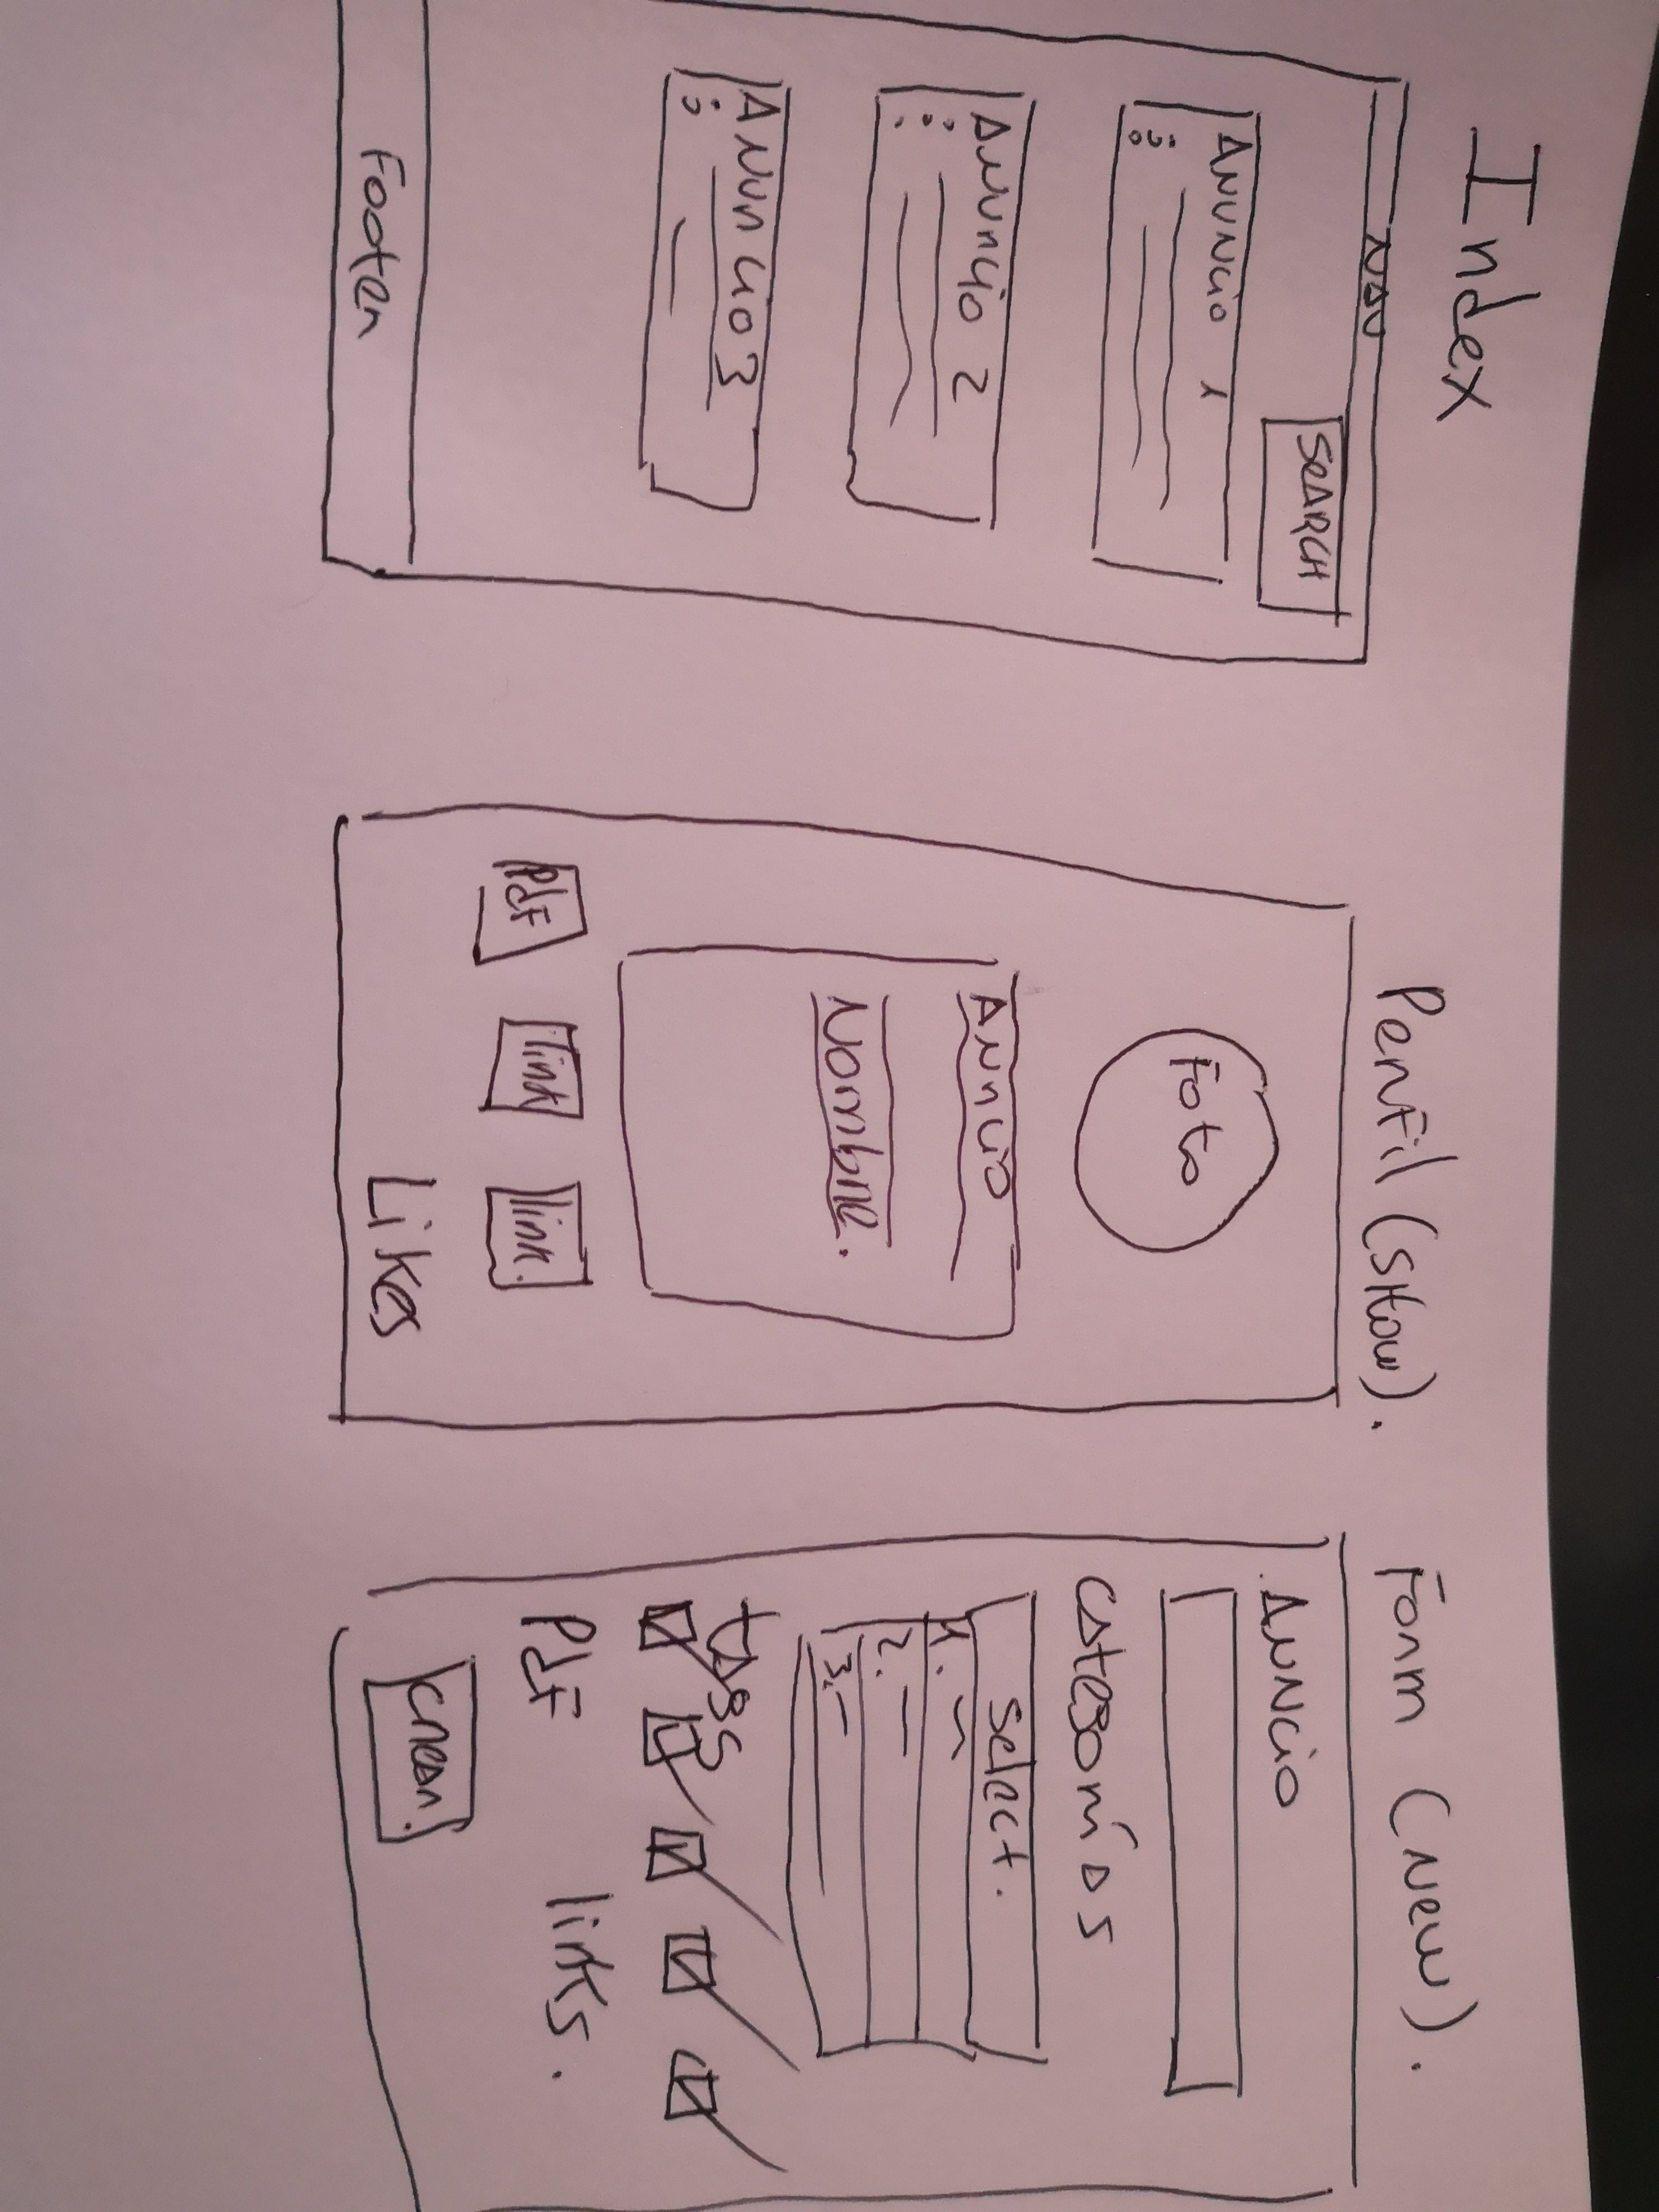 Index
NAV
SEARCH
Anuncio 1
Anuncio 2
Anuncio 3
Footer
Perfil (show).
Foto
Anuncio
Nombre.
PdF
link
link.
Likes
Form (new).
Anuncio
categorías
select.
1.
2.
3.
tags
PdF links.
crear.